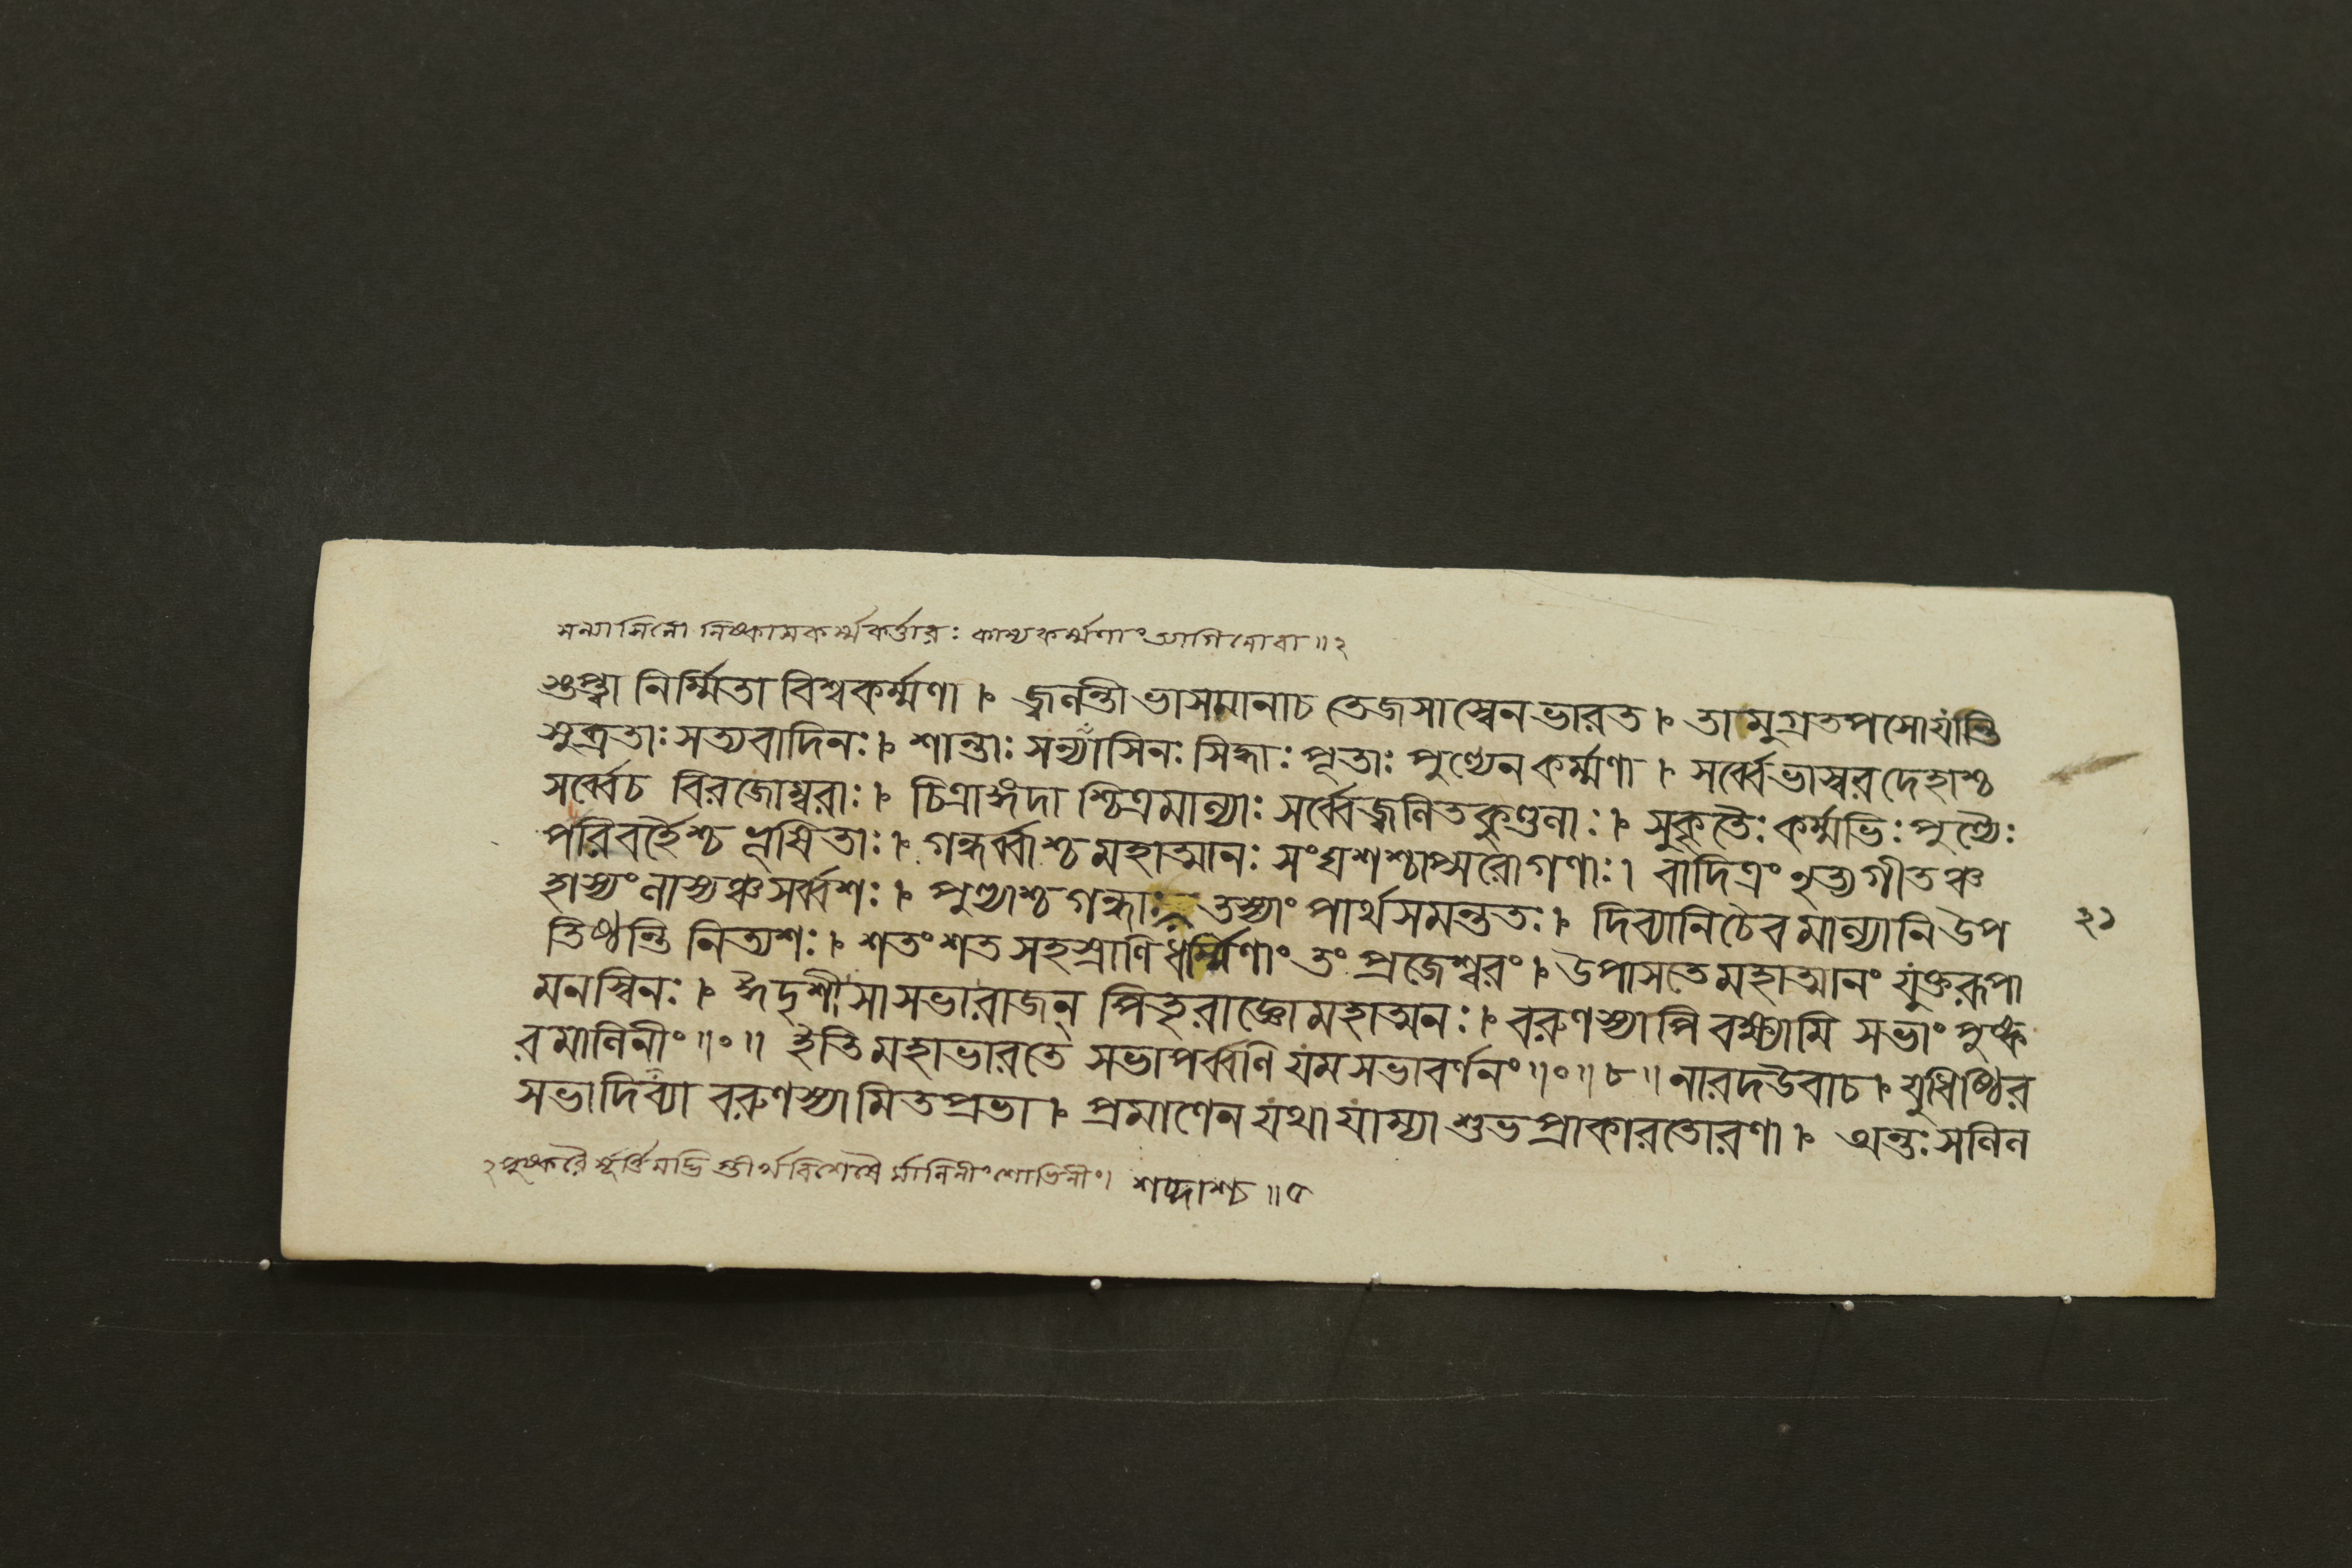 সন্ন্যাসিনো নিষ্কামকর্ম্মকর্ত্তারঃ কাম্যকর্ম্মণাং ত্যাগিনোবা॥২
গুপ্ত্বা নির্ম্মিতা বিশ্বকর্ম্মণা। জ্বলন্তী ভাসমানাচ তেজসাস্বেনভারত। তামুগ্রতপসোযান্তি
সুব্রতাঃ সত্যবাদিনঃ। শান্তাঃ সন্ন্যাসিনঃ সিদ্ধাঃ পূতাঃ পুণ্যেনকর্ম্মণা। সর্ব্বেভাস্বরদেহাশ্চ
সর্ব্বেচ বিরজোম্বরাঃ। চিত্রাঙ্গদাশ্চিত্রমাল্যাঃ সর্ব্বেজ্বলিতকুণ্ডলাঃ। সুকৃতৈঃ কর্ম্মভিঃ পুণ্যৈঃ
পরিবর্হৈশ্চ ভূষিতাঃ। গন্ধর্ব্বাশ্চ মহাত্মানঃ সংঘশশ্চাপ্সরোগণাঃ। বাদিত্রং নৃত্যগীতঞ্চ
হাস্যং লাস্যঞ্চ সর্ব্বশঃ। পুণ্যাশ্চ গন্ধাঃ তস্যাং পার্থসমন্ততঃ। দিব্যানিচৈব মাল্যানি উপ
২১
তিষ্ঠন্তি নিত্যশঃ। শতংশত সহস্রাণি ধর্ম্মিণাং তং প্রজেশ্বরং। উপাসতে মহাত্মানং যুক্তরূপা
মনস্বিনঃ। ঈদৃশী সা সভারাজন্ পিতৃরাজ্ঞো মহাত্মনঃ। বরুণস্যাপি বক্ষ্যামি সভাং পুষ্ক
রমালিনীং॥০॥ ইতি মহাভারতে সভাপর্ব্বণি যমসভাবর্ণনং॥০॥৮॥ নারদউবাচ। যুধিষ্ঠির
সভাদিব্যা বরুণস্যামিতপ্রভা। প্রমাণেন যথা যাম্যা শুভপ্রাকারতোরণা। অন্তঃসলিল
২ পুষ্করৈ র্মালিনীং শোভিনীং। শব্দাশ্চ॥৫